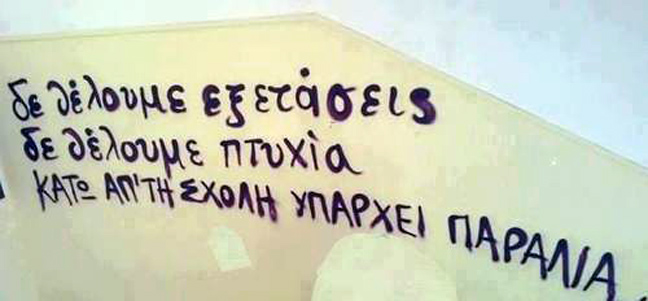 δε θέλουμε εξετάσεις
δε θέλουμε πτυχία
ΚΑΤΩ ΑΠ'ΤΗ ΣΧΟΛΗ ΥΠΑΡΧΕΙ ΠΑΡΑΛΙΑ